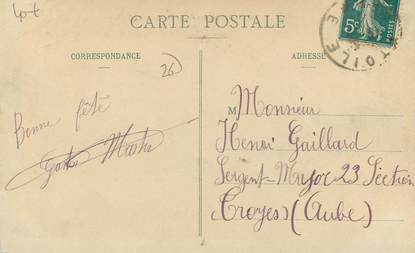 Lot
CARTE POSTALE
CORRESPONDANCE
ADRESSE
26
5c
POSTES
ETOILE
Bonne fête
M Monsieur
Henri Gaillard
Sergent-Major 23 Section
Troyes (Aube)